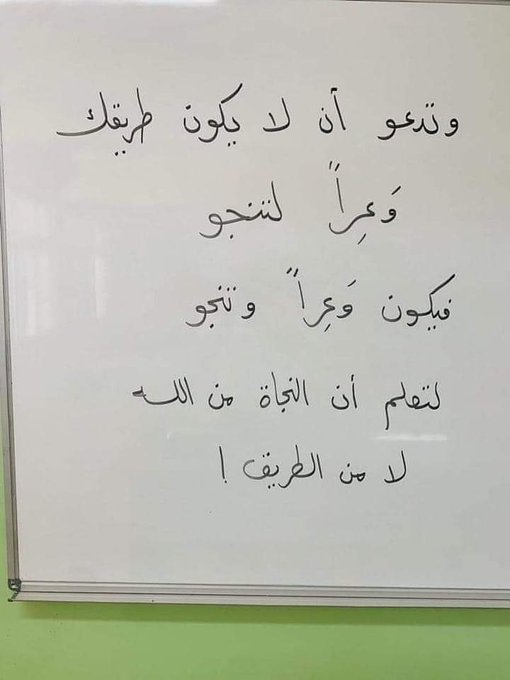 وتدعو أن لا يكون طريقك
وَعِراً لتنجو
فيكون وَعِراً وتنجو
لتعلم أن النجاة من الله
لا من الطريق !